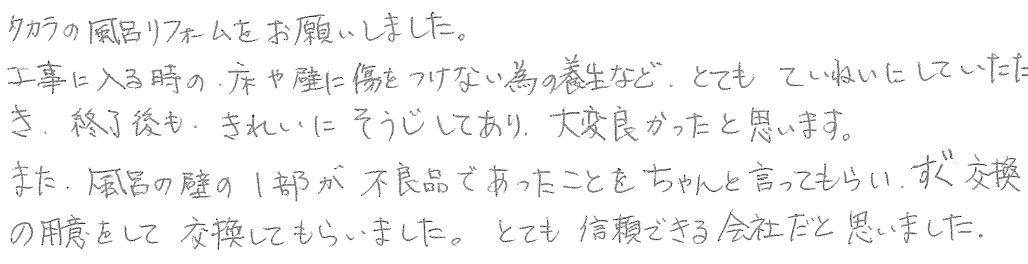 タカラの風呂リフォームをお願いしました。
工事に入る時の、床や壁に傷をつけない為の養生など、とても ていねいにしていただ
き、終了後も、きれいに そうじしてあり、大変良かったと思います。
また、風呂の壁の1部が 不良品であったことを ちゃんと言ってもらい、すぐ交換
の用意をして 交換してもらいました。 とても 信頼できる会社だと思いました.